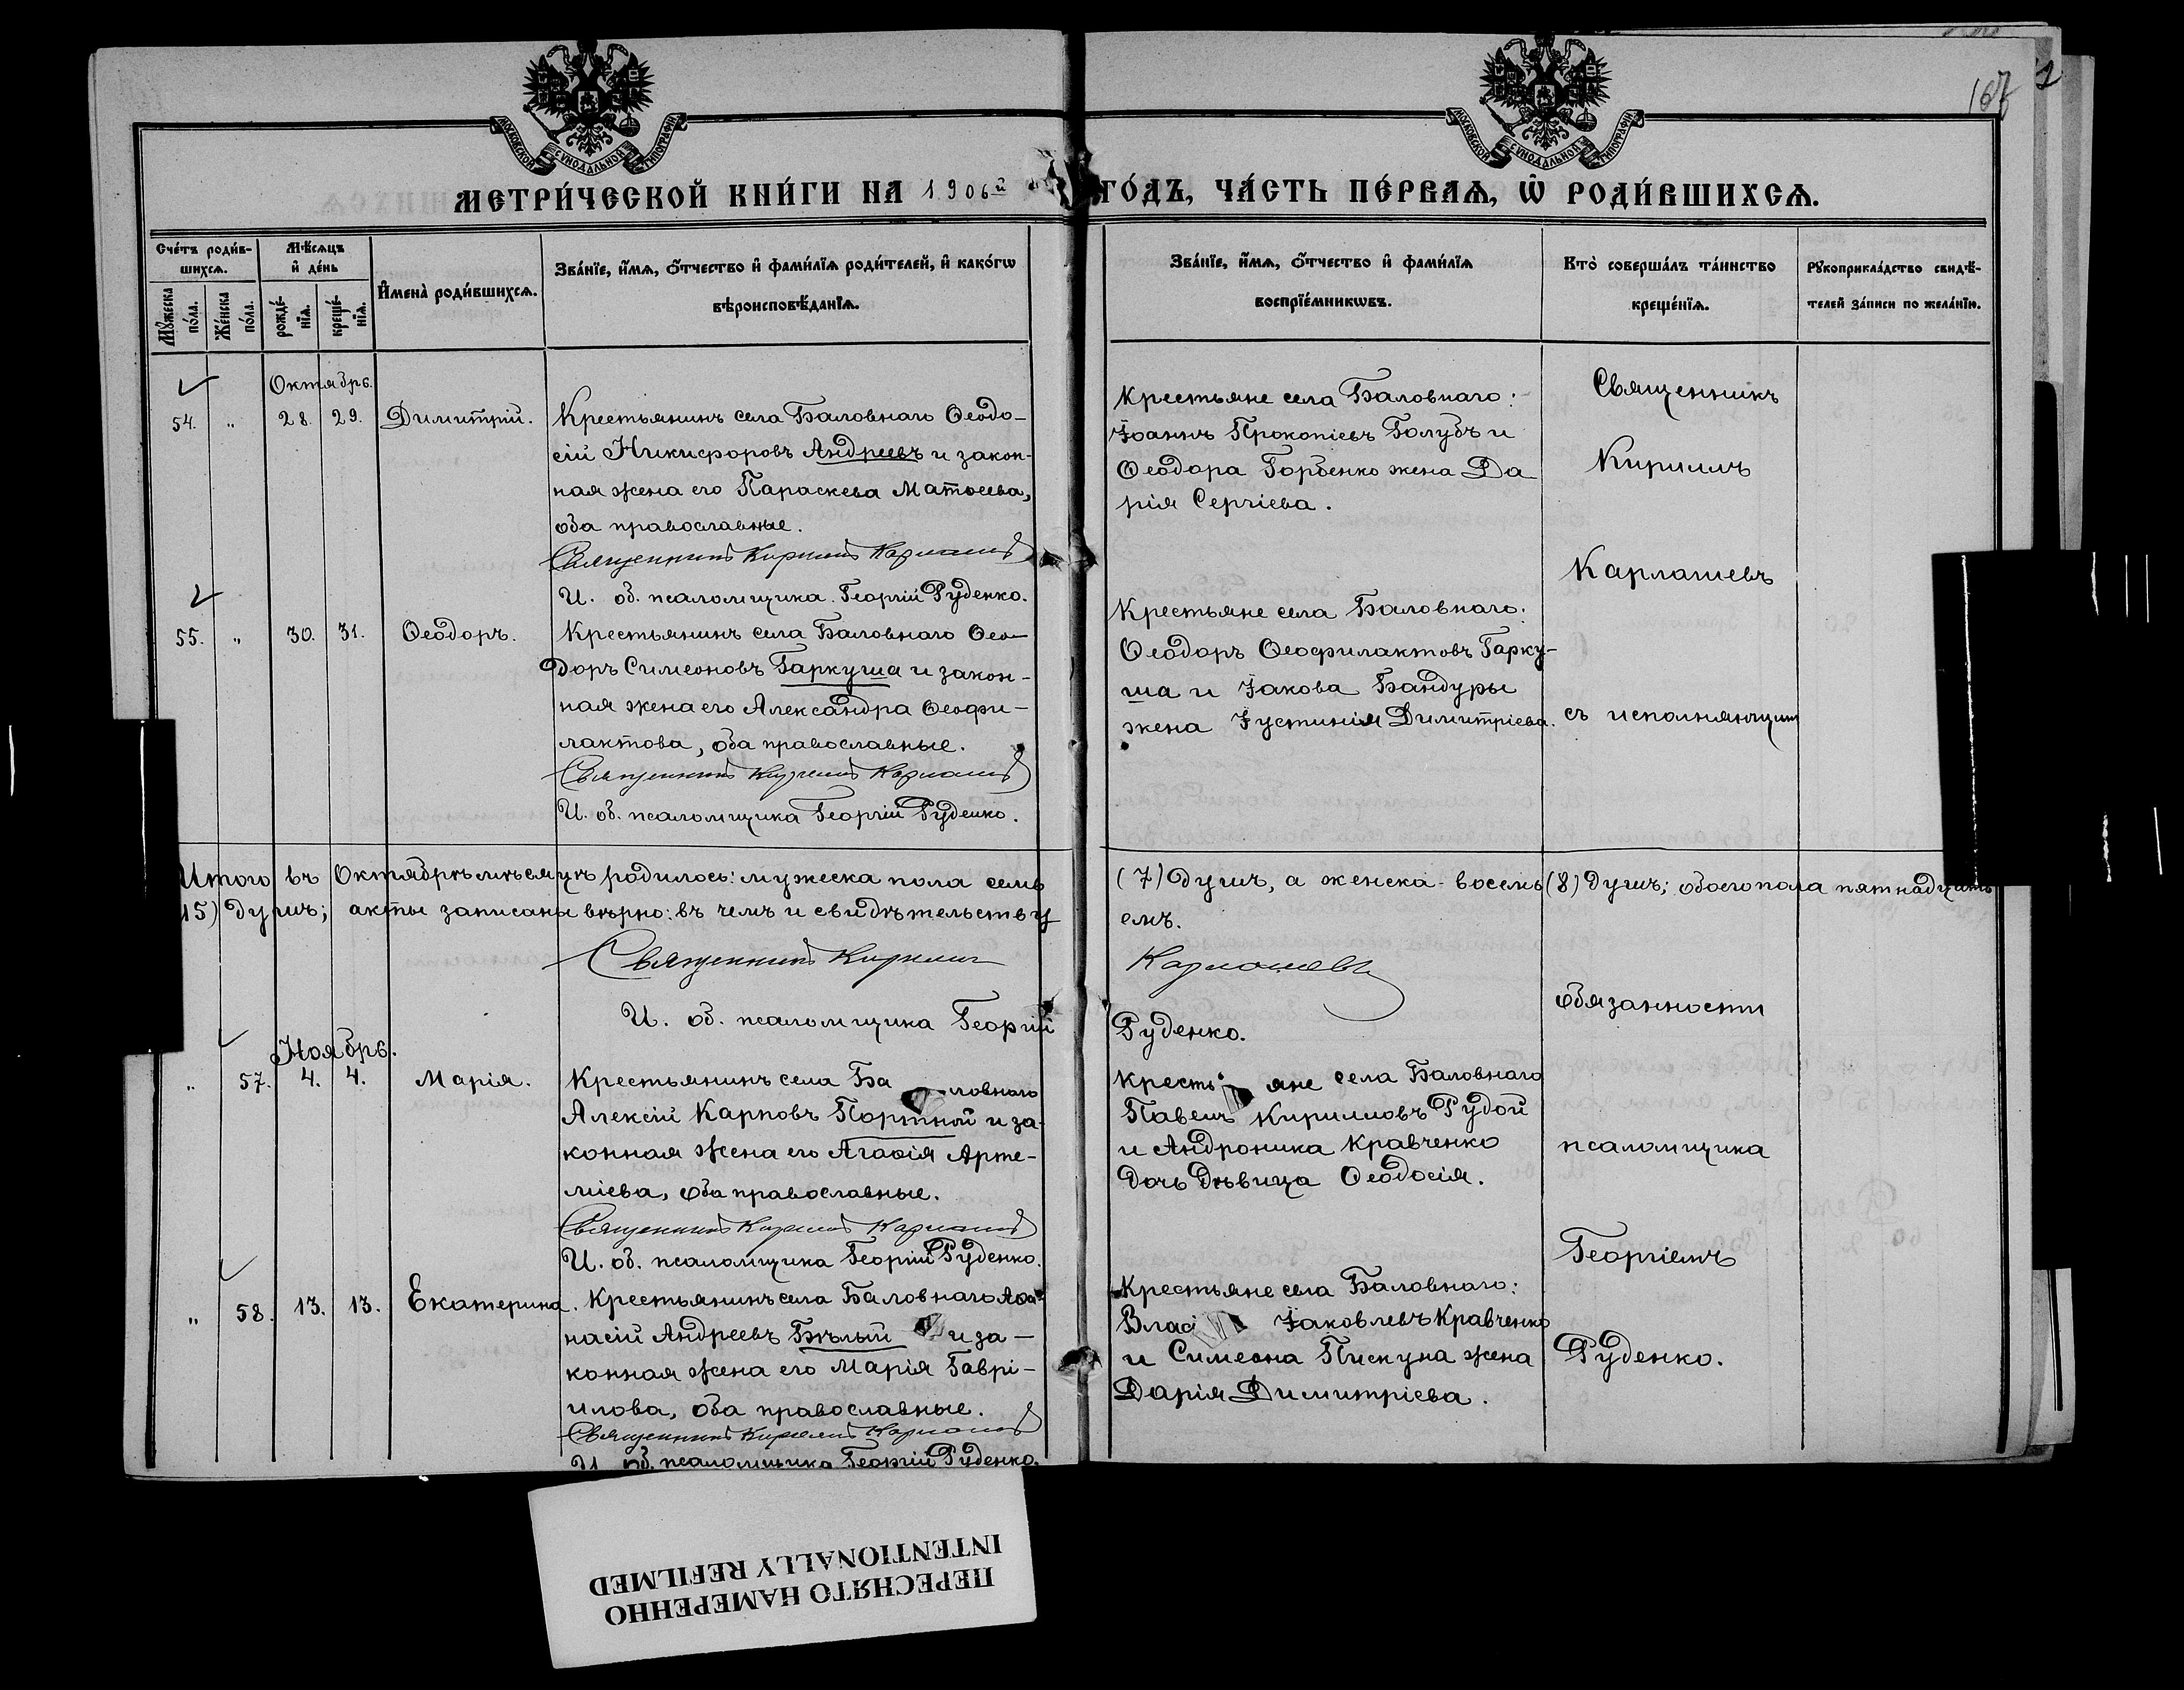 167
2
МОСКОВСКОЙ СУНОДАЛЬНОЙ ТИПОГРАФІИ
МОСКОВСКОЙ СУНОДАЛЬНОЙ ТИПОГРАФІИ
МЕТРИ́ЧЕСКОЙ КНИ́ГИ НА 1906й ГО́ДЪ, ЧА́СТЬ ПЕ́РВАѦ, Ѿ РОДИ́ВШИХСѦ.
Сче́тъ роди́в-
шихсѧ.
Мꙋ́жеска по́ла.
Же́нска по́ла.
Мѣ́сѧцъ
и҆ де́нь
рожде́-
нїѧ.
креще́-
нїѧ.
И҆мена̀ роди́вшихсѧ.
Зва́нїе, и҆́мѧ, ѻ҆́тчество и҆ фами́лїѧ роди́телей, и҆ како́гѡ
вѣроисповѣ́данїѧ.
Зва́нїе, и҆́мѧ, ѻ҆́тчество и҆ фами́лїѧ
воспрїе́мникѡвъ.
Кто̀ соверша́лъ та́инство
креще́нїѧ.
Рꙋкоприкла́дство свидѣ́-
телей за́писи по жела́нїю.
Октябрь.
54. " 28. 29. Димитрій.
Крестьянинъ села Баловнаго Ѳеодо-
сій Никифоровъ Андреевъ и закон-
ная жена его Параскева Матѳеева,
оба православные.
Священникъ Кириллъ Карлашевъ
И. об. псаломщика Георгій Руденко.
Крестьяне села Баловнаго:
Іоаннъ Прокопіевъ Голубъ и
Ѳеодора Горбенко жена Да
рія Сергіева.
Священникъ
Кириллъ
Карлашевъ
55. " 30. 31. Ѳеодоръ.
Крестьянинъ села Баловнаго Ѳео-
доръ Симеоновъ Гаркуша и закон-
ная жена его Александра Ѳеофи-
лактова, оба православные.
Священникъ Кириллъ Карлашевъ
И. об. псаломщика Георгій Руденко.
Крестьяне села Баловнаго:
Ѳеодоръ Ѳеофилактовъ Гарку-
ша и Іакова Бандуры
жена Іустинія Димитріева.
съ исполняющим
Итого въ Октябрѣ мѣсяцѣ родилось: мужеска пола семь (7) душъ, а женска - восемь (8) душъ; обоего пола пятнадцать
15) душъ; акты записаны вѣрно: въ чемъ и свидѣтельству
емъ.
Священникъ Кириллъ Карлашевъ
И. об. псаломщика Георгій Руденко.
обязанности
Ноябрь.
" 57. 4. 4. Марія.
Крестьянинъ села Баловнаго
Алексій Карповъ Портной и за-
конная жена его Агаѳія Арте-
міева, оба православные.
Священникъ Кириллъ Карлашевъ
И. об. псаломщика Георгій Руденко.
Крестьяне села Баловнаго
Павелъ Кирилловъ Рудой
и Андроника Кравченко
дочь дѣвица Ѳеодосія.
псаломщика
Георгіемъ
" 58. 13. 13. Екатерина.
Крестьянинъ села Баловнаго Аѳа-
насій Андреевъ Бѣлый и за-
конная жена его Марія Гаврі-
илова, оба православные.
Священникъ Кириллъ Карлашевъ
И. об. псаломщика Георгій Руденко.
Крестьяне села Баловнаго:
Власій Іаковлевъ Кравченко
и Симеона Пискуна жена
Дарія Димитріева.
Руденко.
ПЕРЕСНЯТО НАМЕРЕННО
INTENTIONALLY REFILMED